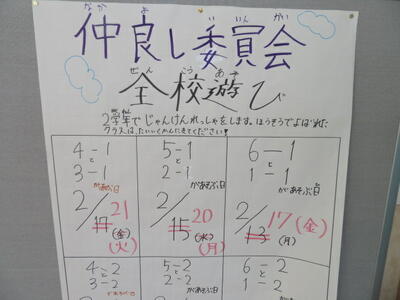 なかよしいいんかい
仲良し委員会
ぜんこうあそ
全校遊び
2学年でじゃんけんれっしゃをします。ほうそうでよばれた
クラスは、たいいくかんにきてください!
4-1
と
3-1
があそぶ日
2/17 21
(金)
(火)
5-1
と
2-1
があそぶ日
2/15 20
(水)
(月)
6-1
と
1-1
があそぶ日
2/13 17(金)
(月)
4-2
と
3-2
があそぶ日
5-2
と
2-2
があそぶ日
6-2
と
1-2
があそぶ日